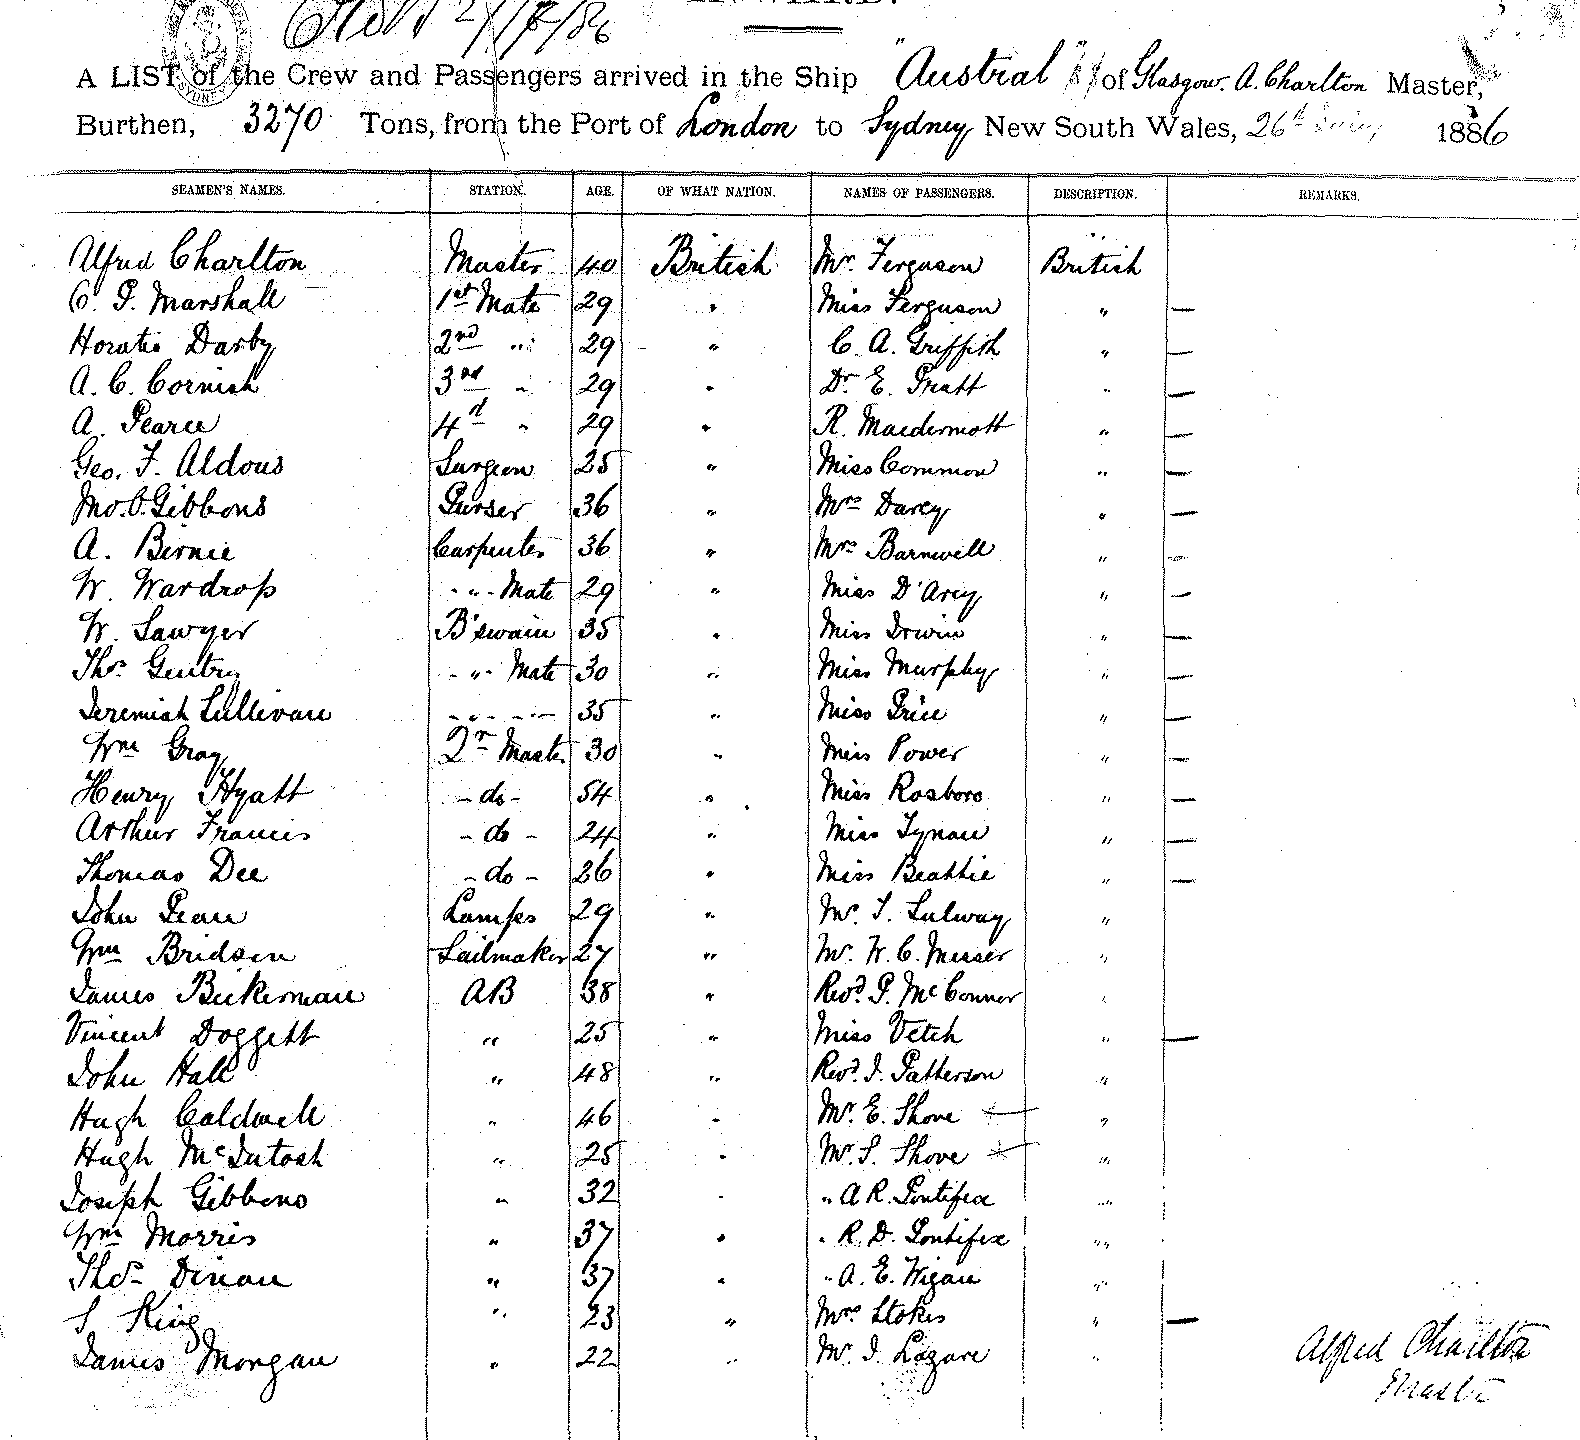 27/7/86
A LIST of the Crew and Passengers arrived in the Ship "Austral" of Glasgow. A. Charlton Master,
Burthen, 3270 Tons, from the Port of London to Sydney New South Wales, 26th 1886
SEAMEN'S NAMES. STATION. AGE. OF WHAT NATION. NAMES OF PASSENGERS. DESCRIPTION. REMARKS.
Alfred Charlton Master 40 British Mr. Ferguson British
C. P. Marshall 1st Mate 29 " Miss Ferguson " —
Horatio Darby 2nd " 29 " C. A. Griffith " —
A. C. Cornish 3rd " 29 " Dr. E. Pratt " —
A. Pearce 4th " 29 " R. Macdermott " —
Geo. F. Aldous Surgeon 25 " Miss Common " —
Jno. O. Gibbons Purser 36 " Mrs Darcy " —
A. Birnie Carpenter 36 " Mrs Barnwell " —
W. Wardrop " Mate 29 " Miss D'Arcy " —
W. Sawyer B'swain 35 " Miss Irwin " —
Thos. Gentry " Mate 30 " Miss Murphy " —
Jeremiah Sullivan " " 35 " Miss Price " —
Wm Gray Qr Master 30 " Miss Power " —
Henry Hyatt - do - 54 " Miss Rosboro " —
Arthur Francis - do - 24 " Miss Tynan " —
Thomas Dee - do - 26 " Miss Beattie " —
John Pean Lamps 29 " Mr. T. Sulway "
Wm Bridsen Sailmaker 27 " Mr. W. C. Messer "
James Bickerman AB 38 " Revd. P. McConnor "
Vincent Doggett " 25 " Miss Vetch " —
John Hall " 48 " Revd. J. Patterson "
Hugh Caldwell " 46 " Mr. E. Shove "
Hugh McIntosh " 25 " Mr. S. Shove "
Joseph Gibbons " 32 " " A R. Pontifex "
Wm Morris " 37 " " R. D. Pontifex "
Thos. Dinan " 37 " " A. E. Wigan "
S King " 23 " Mrs Stokes " —
James Morgan " 22 " Mr. J. Lazare "
Alfred Charlton
Master